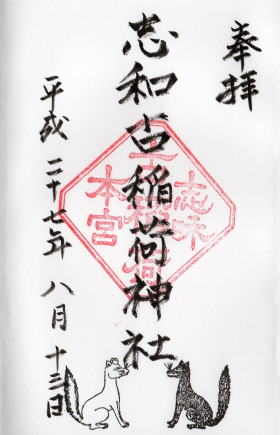 奉拝
志和古稲荷神社
平成二十七年八月十三日
志味
本宮